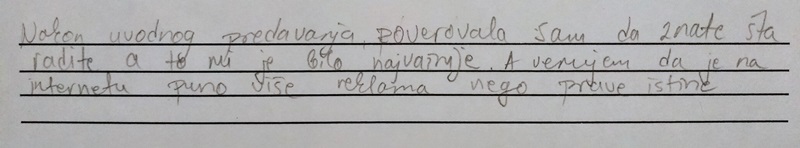 Nakon uvodnog predavanja, poverovala sam da znate šta
radite a to mi je bilo najvažnije. A verujem da je na
internetu puno više reklama nego prave istine